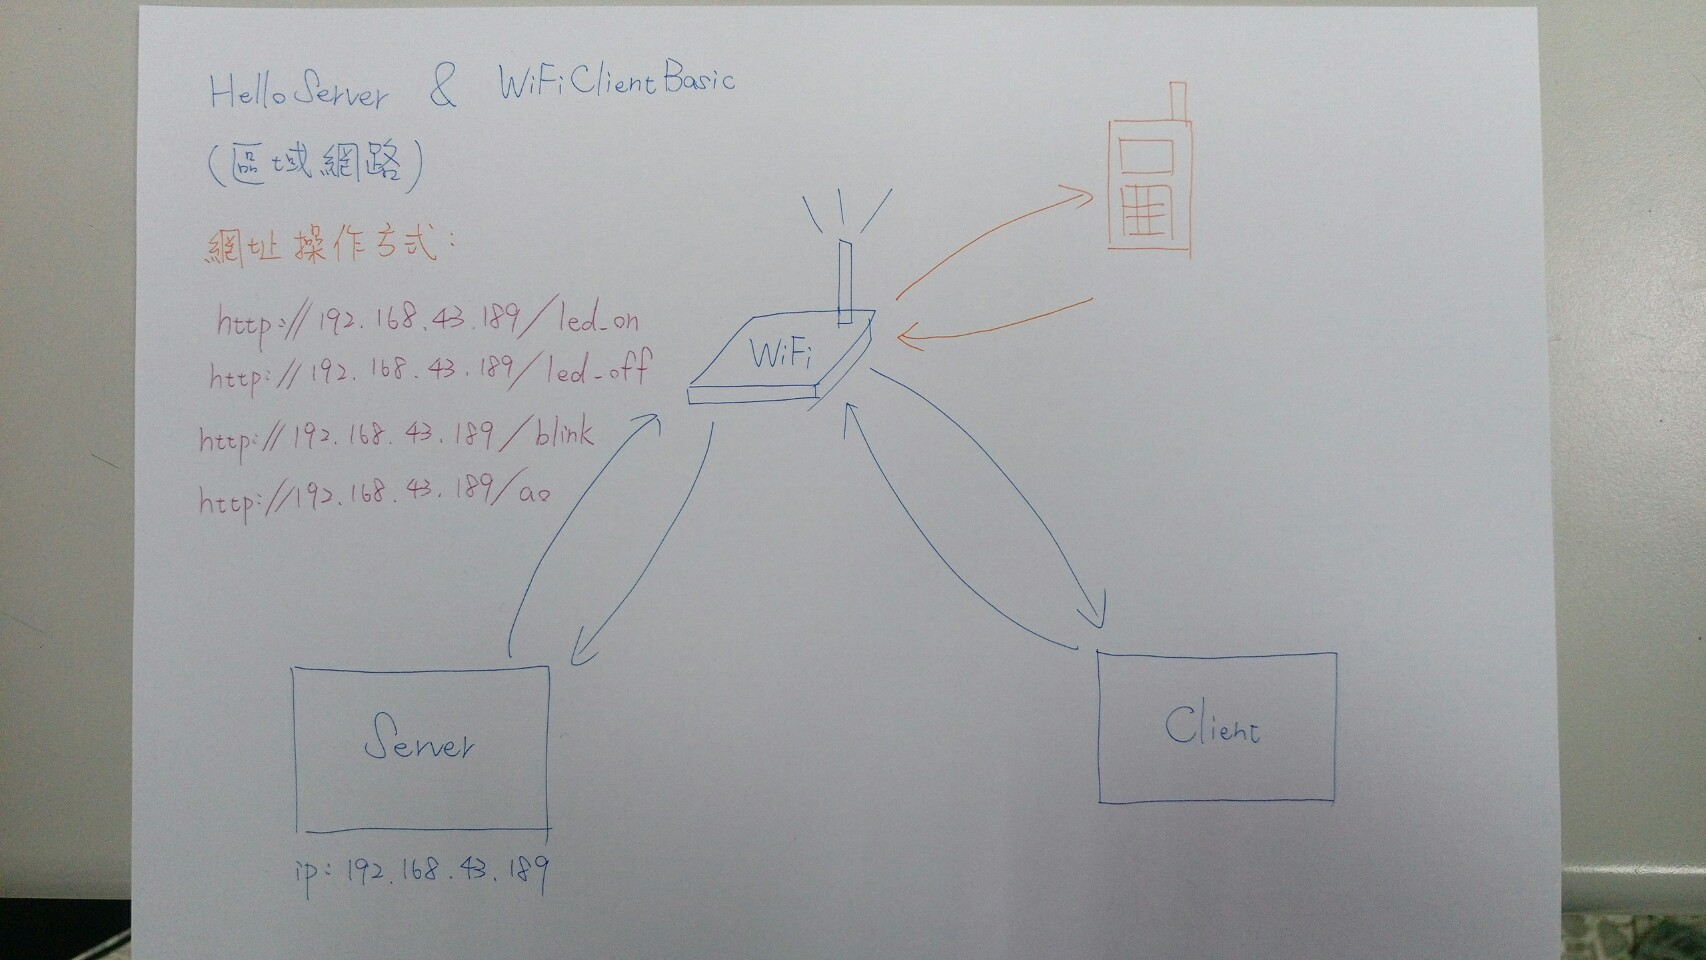 HelloServer & WiFiClientBasic
(區域網路)
網址操作方式:
http://192.168.43.189/led_on
http://192.168.43.189/led_off
http://192.168.43.189/blink
http://192.168.43.189/ao
WiFi
Server
Client
ip: 192.168.43.189